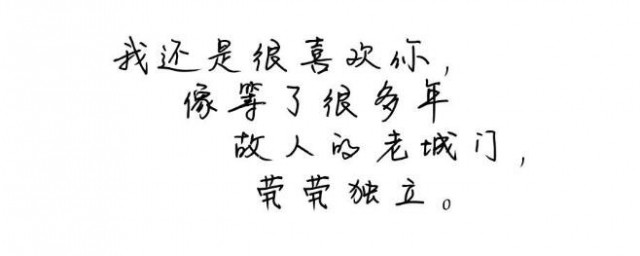 我还是很喜欢你，
像等了很多年
故人的老城门，
茕茕独立。